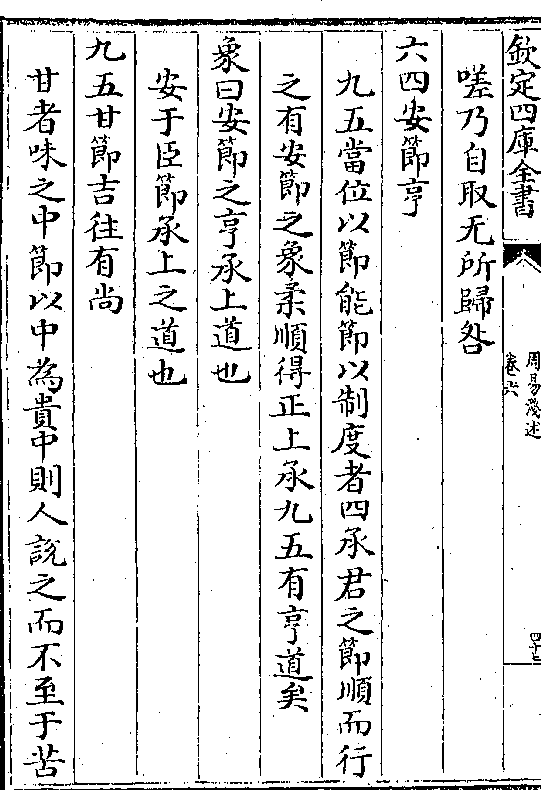 欽定四庫全書
周易淺述
卷六
嗟乃自取无所歸咎
六四安節亨
九五當位以節能節以制度者四承君之節順而行
之有安節之象柔順得正上承九五有亨道矣
象曰安節之亨承上道也
安于臣節承上之道也
九五甘節吉往有尚
甘者味之中節以中為貴中則人說之而不至于苦